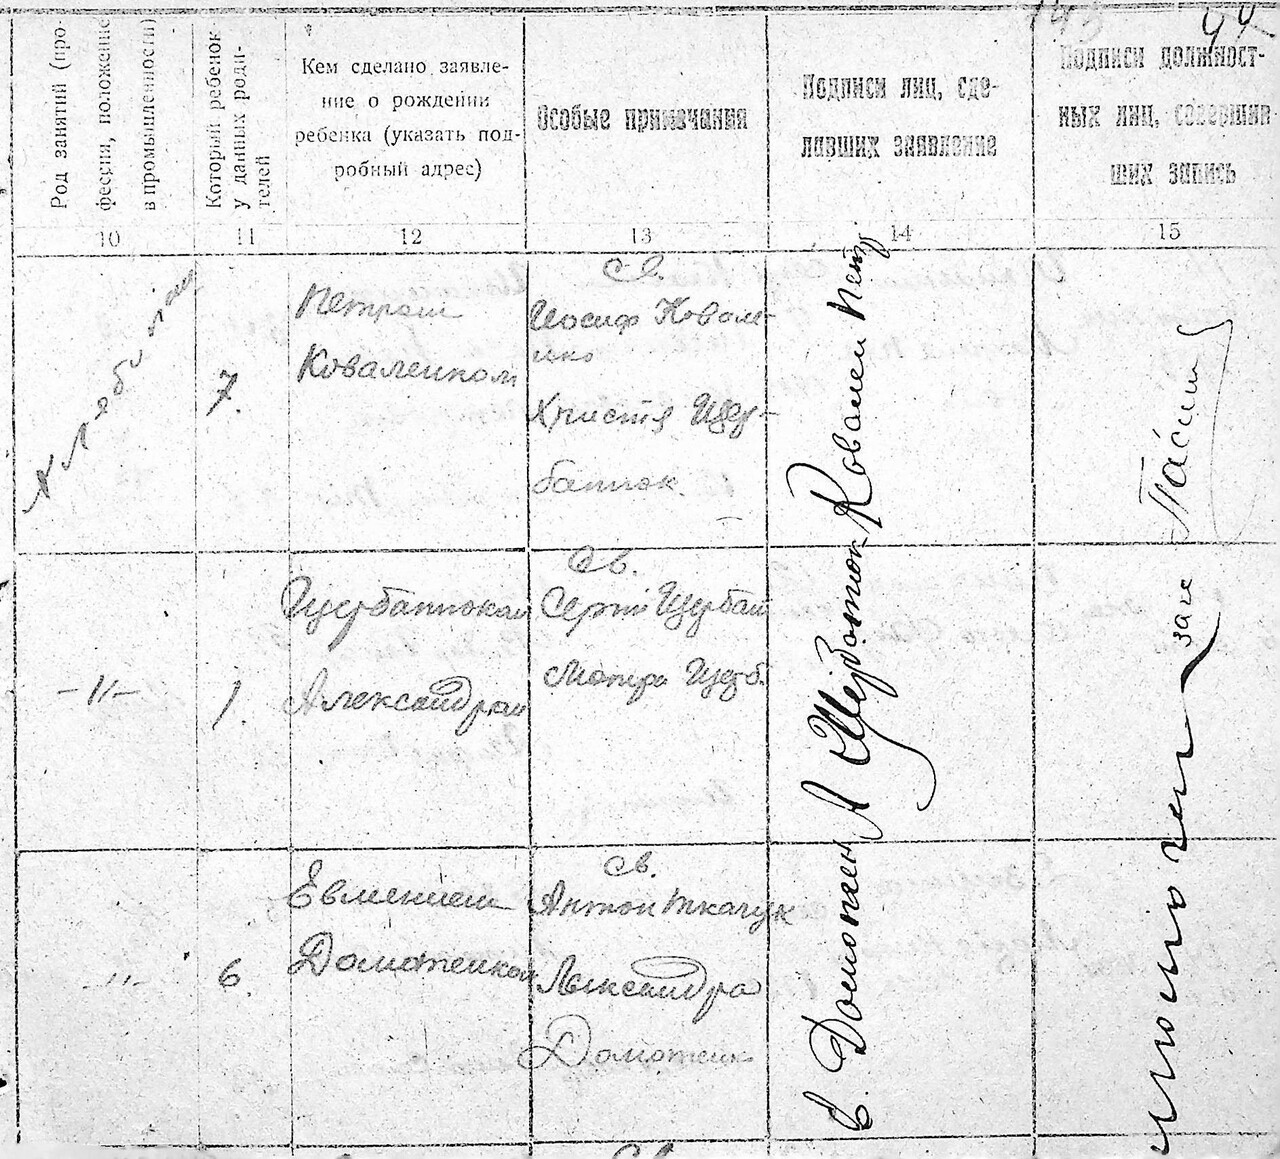 Род занятий (про-
фессия, положение
в промышленности)
Который ребенок
у данных роди-
телей
Кем сделано заявле-
ние о рождении
ребенка (указать под-
робный адрес)
Особые примечания
Подписи лиц, сде-
лавших заявление
Подписи должност-
ных лиц, совершив-
ших запись
10
11
12
13
14
15
Хлебопаш
7.
Петром
Коваленком
Св.
Иосиф Ковален-
ко
Христя Щер-
банюк.
Ковален Петр
-"-
1.
Щербанюком
Александром
Св.
Сергій Щербан
Мотря Щерб.
А Щерботюк
"
6.
Евмением
Домотенком
Св.
Антон Ткачук
Александра
Домотенк
Е. Домотен
загс